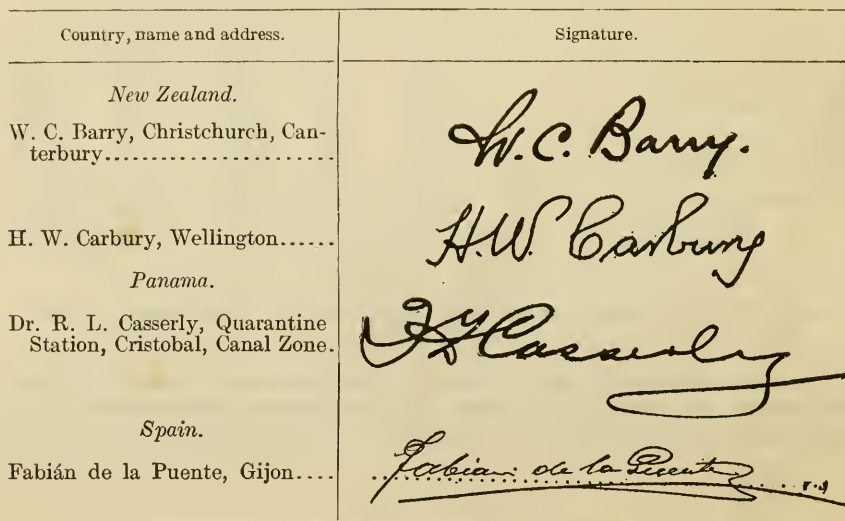 Country, name and address.
Signature.
New Zealand.
W. C. Barry, Christchurch, Can-
terbury......................
W.C. Barry.
H. W. Carbury, Wellington......
H.W. Carbury
Panama.
Dr. R. L. Casserly, Quarantine
Station, Cristobal, Canal Zone.
Casserly
Spain.
Fabián de la Puente, Gijon....
Fabian de la Puente